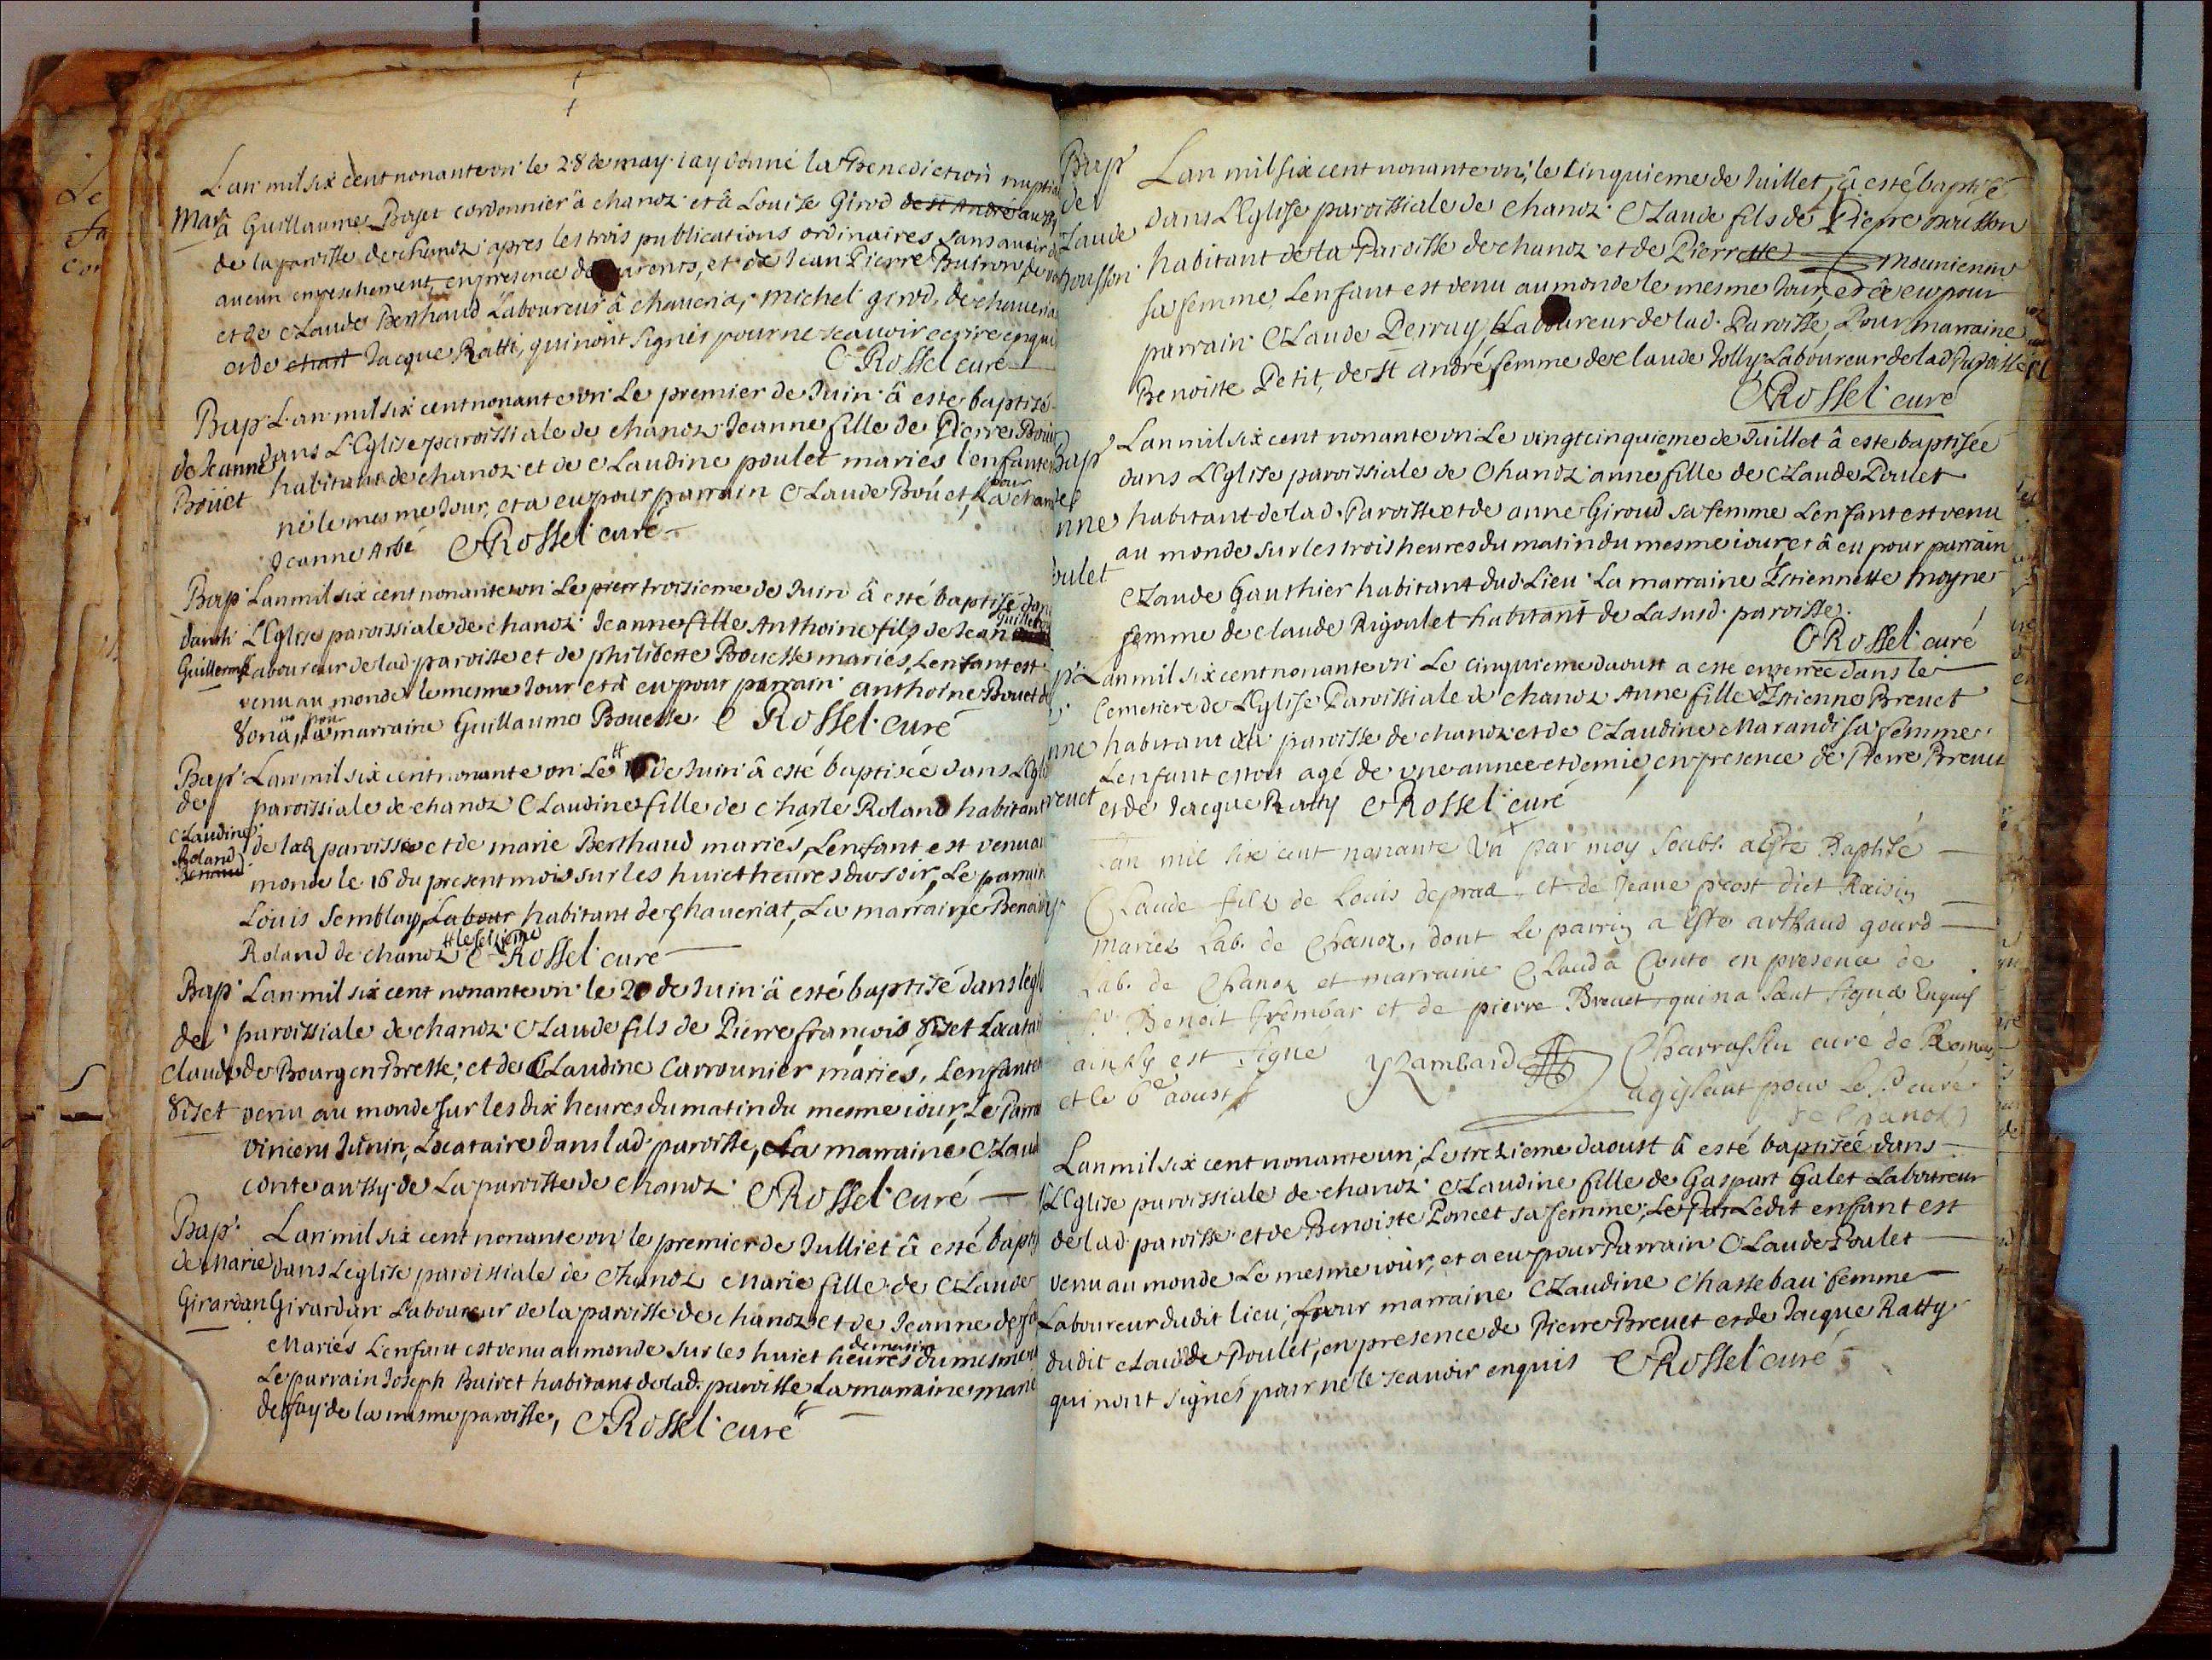 L'an mil six cent nonante un le 28 de may iay donné la Benediction nuptia
Mar. à Guillaume Bajet cordonnier à chanoz et à Louise Girod de st André aussy
de la paroisse de chanoz apres les trois publications ordinaires sans avoir
aucun empeschement, en presence de parents, et de Jean Pierre Buiron de
et de Claude Berthaud Laboureur à chaveria, michel girod, de chaveria
et de chast Jacque Ratti, qui nont signés pour ne scavoir ecrire enqui
C Rossel curé
Bap. L'an mil six cent nonante un Le premier de Juin à esté baptisé
de Jeanne dans L'Eglise paroissiale de chanoz Jeanne fille de Pierre Boüe
Boüet habitant de chanoz et de Claudine poulet mariés l'enfant e
né le mesme Jour, et a eu pour parrain Claude Boüet, pour La
Jeanne Arbé C Rossel curé
Bap. Lan mil six cent nonante un Le prem troisieme de Juin à esté baptisé dans
danth. L'Eglise paroissiale de chanoz Jeanne fille Anthoine fils de Jean Guillerm
Guillerm Laboureur de lad. paroisse et de philiberte Bouesse mariés, Lenfant est
venu au monde le mesme Jour et à eu pour parrain anthoine Bouet de
pour la marraine Guillaume Bouesse. C Rossel curé
Bap. Lan mil six cent nonante un Le # de Juin à esté baptisée dans L'Egli
de paroissiale de chanoz Claudine fille de charle Roland habitant
Claudine de lad. paroisse et de marie Berthaud mariés, Lenfant est venu au
Roland
Renaud monde le 16 du present mois sur les huict heures du soir, Le parrain
Louis Semblay, Labour habitant de chaveriat, La marraine Benoi
Roland de chanoz # le seisieme C Rossel curé
Bap. Lan mil six cent nonante un le 20 de Juin à esté baptisé dans l'egl
de paroissiale de chanoz Claude fils de Pierre françois Viset Locatai
claude de Bourg en Bresse, et de Claudine Carrounier mariés, Lenfant e
Viset venu au monde sur les dix heures du matin du mesme iour, Le Parra
vincent Junin, Locataire dans lad. paroisse, La marraine Claud
conte aussy de La paroisse de chanoz C Rossel curé
Bap. Lan mil six cent nonante un le premier de Julliet à esté bapti
de Marie dans Leglise paroissiale de chanoz Marie fille de Claude
Girardan Girardan Laboureur de la paroisse de chanoz et de Jeanne de fa
Mariés L'enfant est venu au monde sur les huict heures de matin du mesme
Le parrain Joseph Buiret habitant de lad. paroisse La marraine marie
de fay de la mesme paroisse, C Rossel curé
Bap Lan mil six cent nonante un, le cinquieme de Juillet, à esté baptisé
de dans L'Eglise paroissiale de chanoz Claude fils de Pierre mousson
Claude habitant de la Paroisse de chanoz et de Pierrette mounienin
mousson sa femme, Lenfant est venu au monde le mesme Jour, et à eu pour
parrain Claude Perruy, Laboureur de lad. Paroisse, Pour marraine
Benoiste Petit, de st André femme de Claude Jolly, Laboureur de lad. Paroisse
C Rossel curé
Bap Lan mil six cent nonante un Le vingt cinquieme de Juillet à esté baptisée
dans L'Eglise paroissiale de Chanoz anne fille de Claude Poulet
nne habitant de lad. Paroisse et de anne Giroud sa femme Lenfant est venu
au monde sur les trois heures du matin du mesme iour et à eu pour parrain
oulet Claude Gauthier habitant dud. Lieu La marraine Estiennette moyne
femme de claude Rigoulet habitant de La susd. paroisse.
C Rossel curé
Lan mil six cent nonante un Le cinquieme daoust a esté enterrée dans le
Cemetiere de L'Eglise Paroissiale de chanoz Anne fille d'Estienne Breuet
nne habitant de paroisse de chanoz et de Claudine Marandi sa femme.
Lenfant estoit agé de une année et demie, en presence de Pierre Breuet
reuet et de Jacque Ratty C Rossel curé
Lan mil six cent nonante un par moy soubs. a esté Baptisé
Claude filz de Louis deprad et de Jeane prost dict Raisin
mariez Lab. de Chanoz, dont le parrin a esté arthaud gourd
Lab. de Chanoz et marraine Clauda Conte en presence de
Sr. Benoit frembar et de pierre Breuet qui na sceut signer Enquis
ainsy est signé YRambard Charrassin curé de Romans
et le 6e aoust agissant pour le Sr. curé
de Chanoz
Lan mil six cent nonante un, Le trezieme daoust à esté baptisée dans
L'Eglise paroissiale de chanoz Claudine fille de Gaspart Galet Laboureur
de lad. paroisse et de Benoiste Poncet sa femme, Le Par Ledit enfant est
venu au monde Le mesme iour, et a eu pour Parrain Claude Poulet
Laboureur dudit lieu, pour marraine Claudine Chassebau femme
dudit claude Poulet, en presence de Pierre Breuet et de Jacque Ratty
qui nont signés pour ne le scavoir enquis C Rossel curé